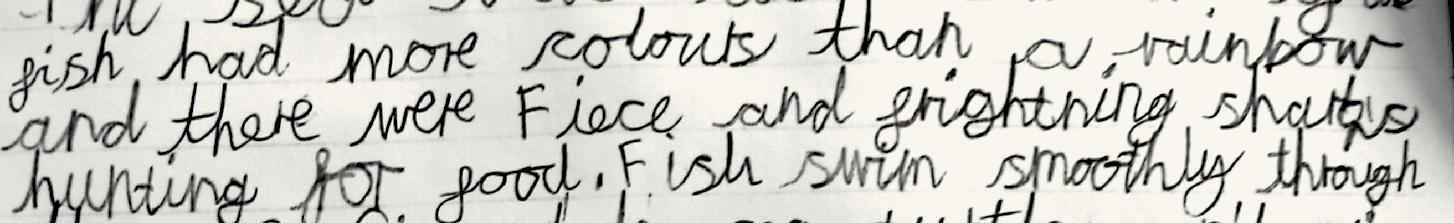 The
fish had more colours than a rainbow
and there were Fiece and frightning sharks
hunting for food. Fish swim smoothly through